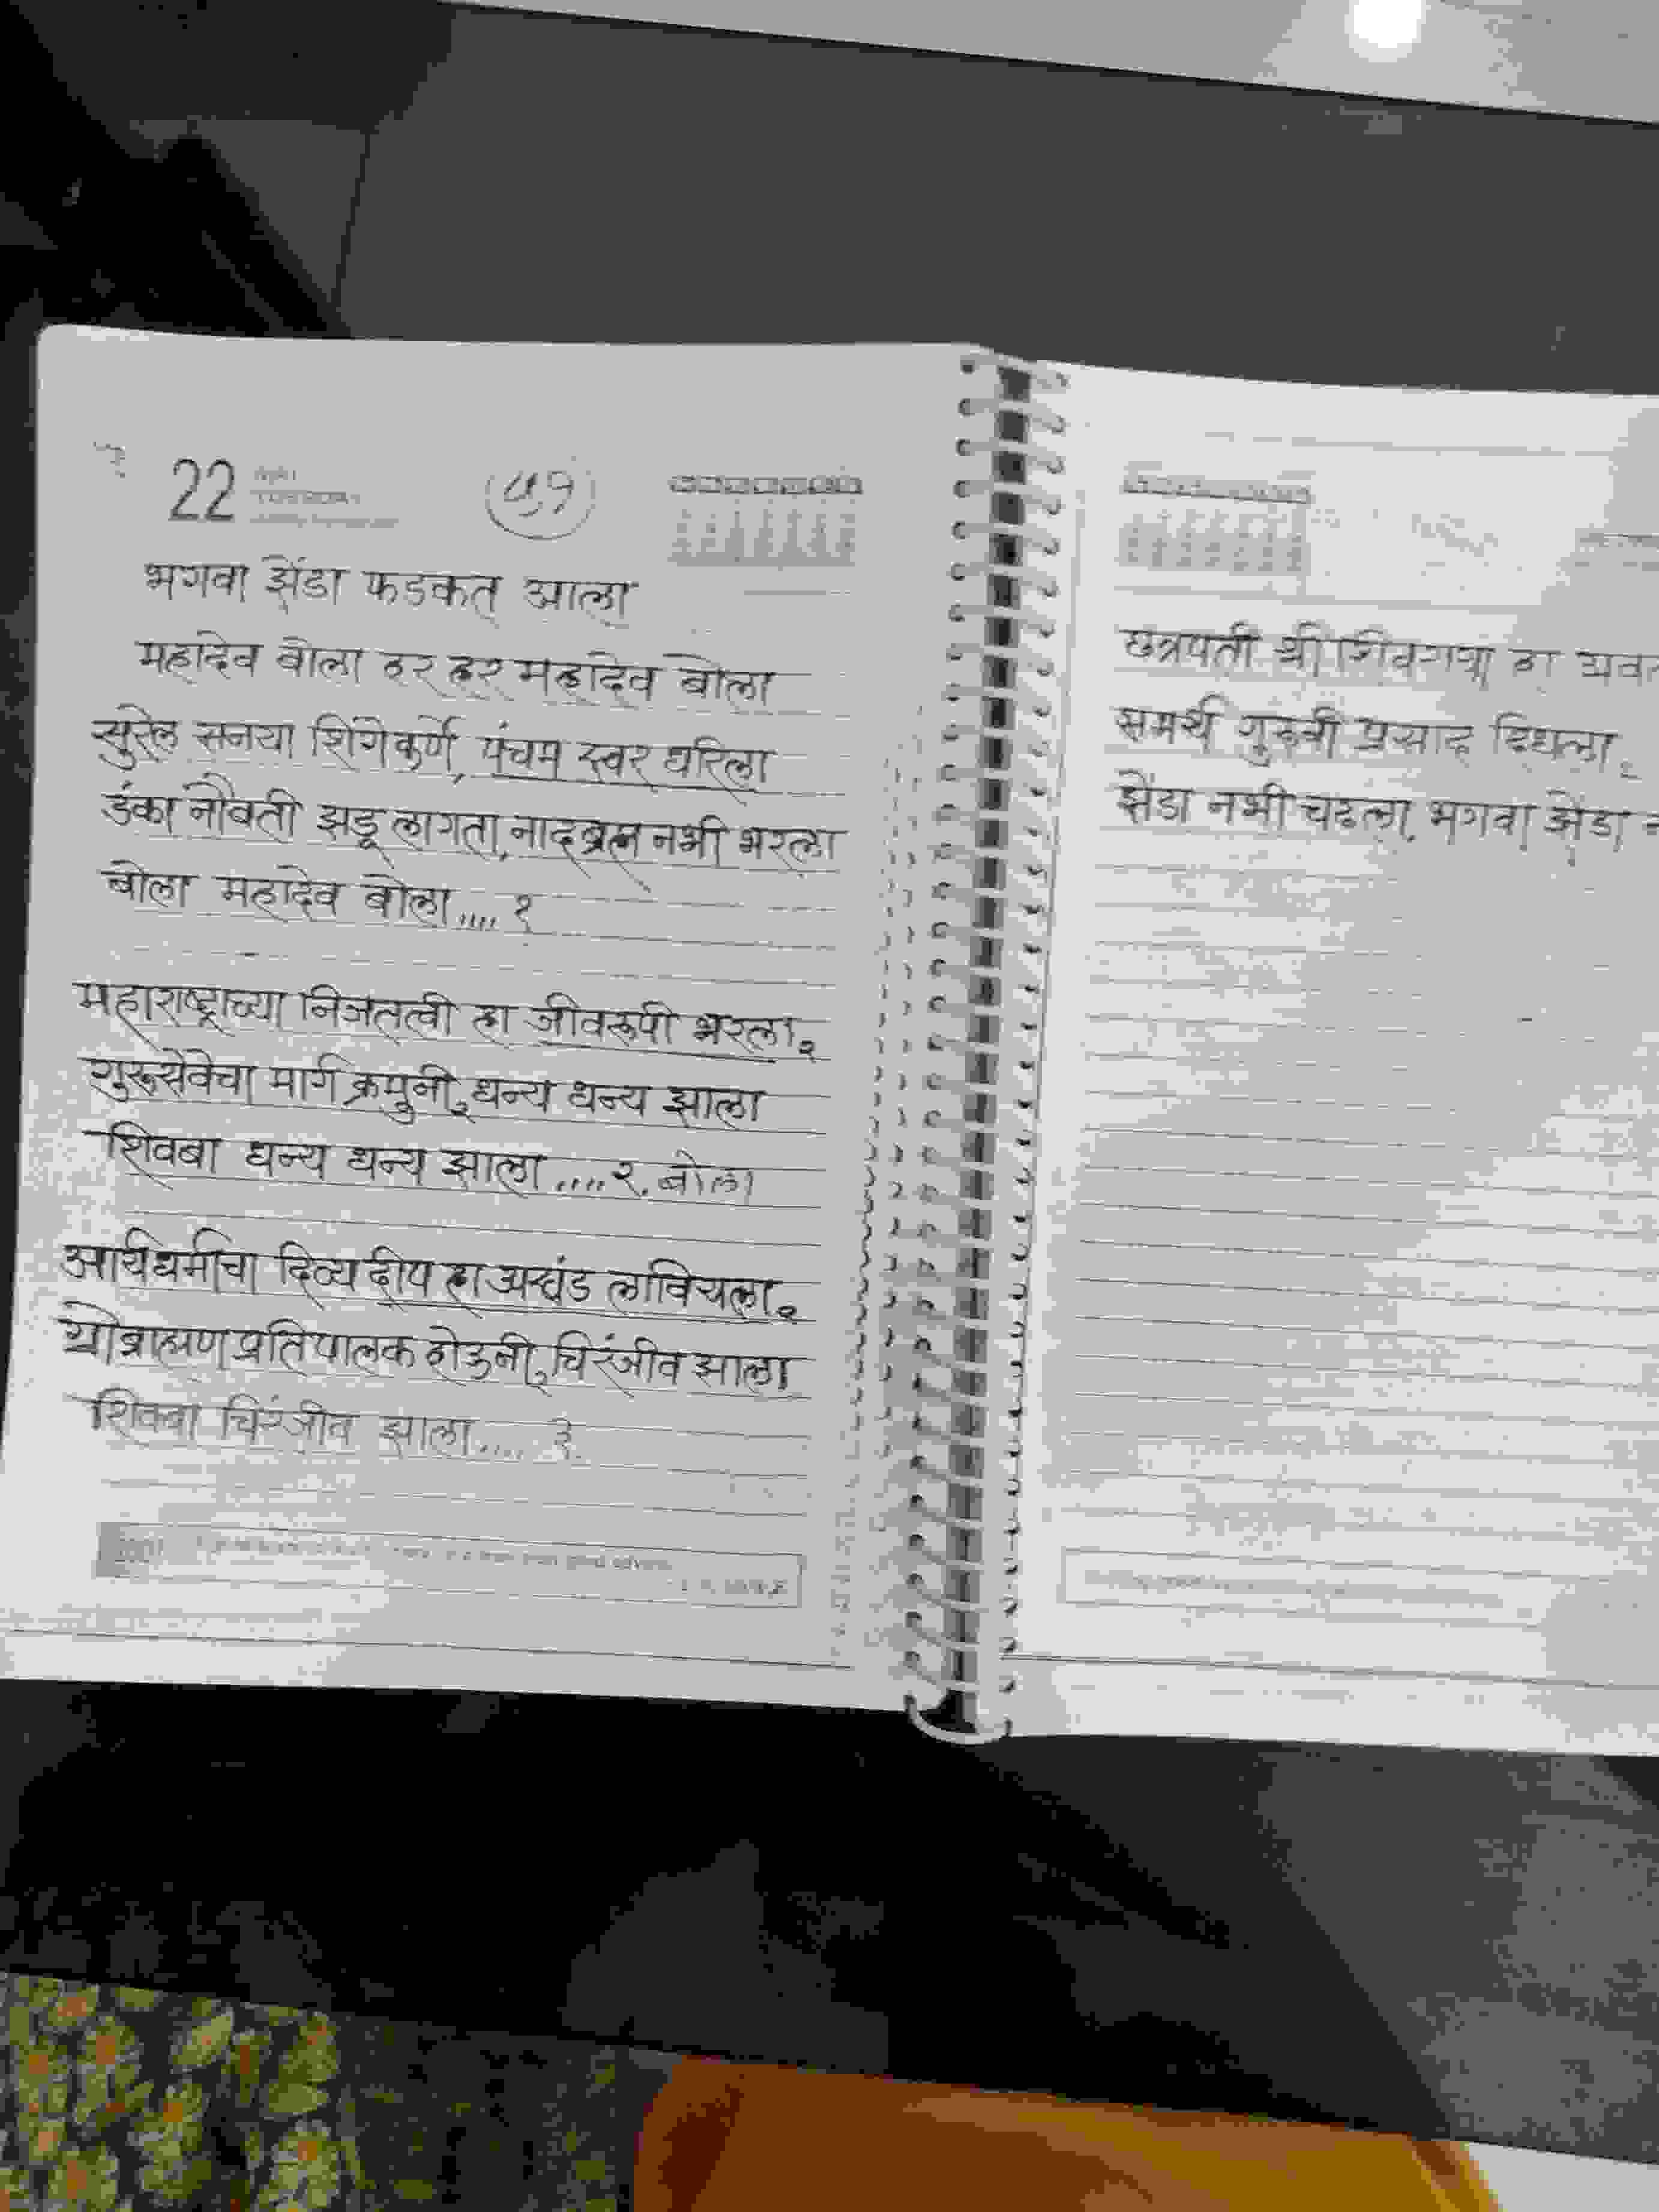 22
५१
भगवा झेंडा फडकत आला
महादेव बोला हर हर महादेव बोला
सुरेल सनया शिंगेकर्णे, पंचम स्वर धरिला
डंका नौबती झडू लागता, नादब्रह्म नभी भरला
बोला महादेव बोला .... १
महाराष्ट्राच्या निजतत्वी हा जीवरूपी भरला २
गुरूसेवेचा मार्ग क्रमुनी २ धन्य धन्य झाला
शिवबा धन्य धन्य झाला .... २. बोला
आर्यधर्माचा दिव्य दीप हा अखंड लावियला २
गोब्राह्मण प्रतिपालक होऊनी २ चिरंजीव झाला
शिवबा चिरंजीव झाला .... ३
छत्रपती श्री शिवराया हा
समर्थ गुरूनी प्रसाद दिधला २
झेंडा नभी चढला, भगवा झेंडा